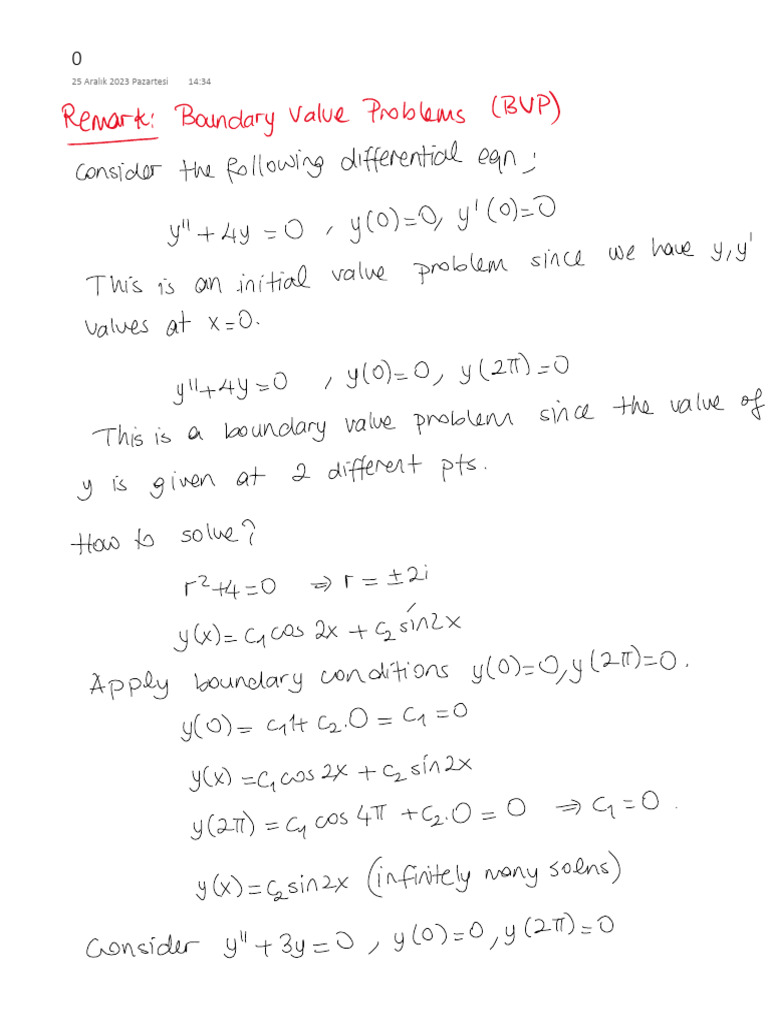 0
25 Aralık 2023 Pazartesi 14:34
Remark: Boundary Value Problems (BVP)
Consider the following differential eqn;
y'' + 4y = 0 , y(0)=0, y'(0)=0
This is an initial value problem since we have y, y'
values at x=0.
y''+4y=0 , y(0)=0, y(2π)=0
This is a boundary value problem since the value of
y is given at 2 different pts.
How to solve?
r²+4=0 ⇒ r = ±2i
y(x)= c₁cos 2x + c₂ sin2x
Apply boundary conditions y(0)=0, y(2π)=0.
y(0)= c₁1+ c₂.0 = c₁=0
y(x) =c₁cos 2x + c₂ sin2x
y(2π) = c₁ cos 4π + c₂.0 = 0 ⇒ c₁=0.
y(x)=c₂sin2x (infinitely many solns)
Consider y''+3y=0 , y(0)=0, y(2π)=0